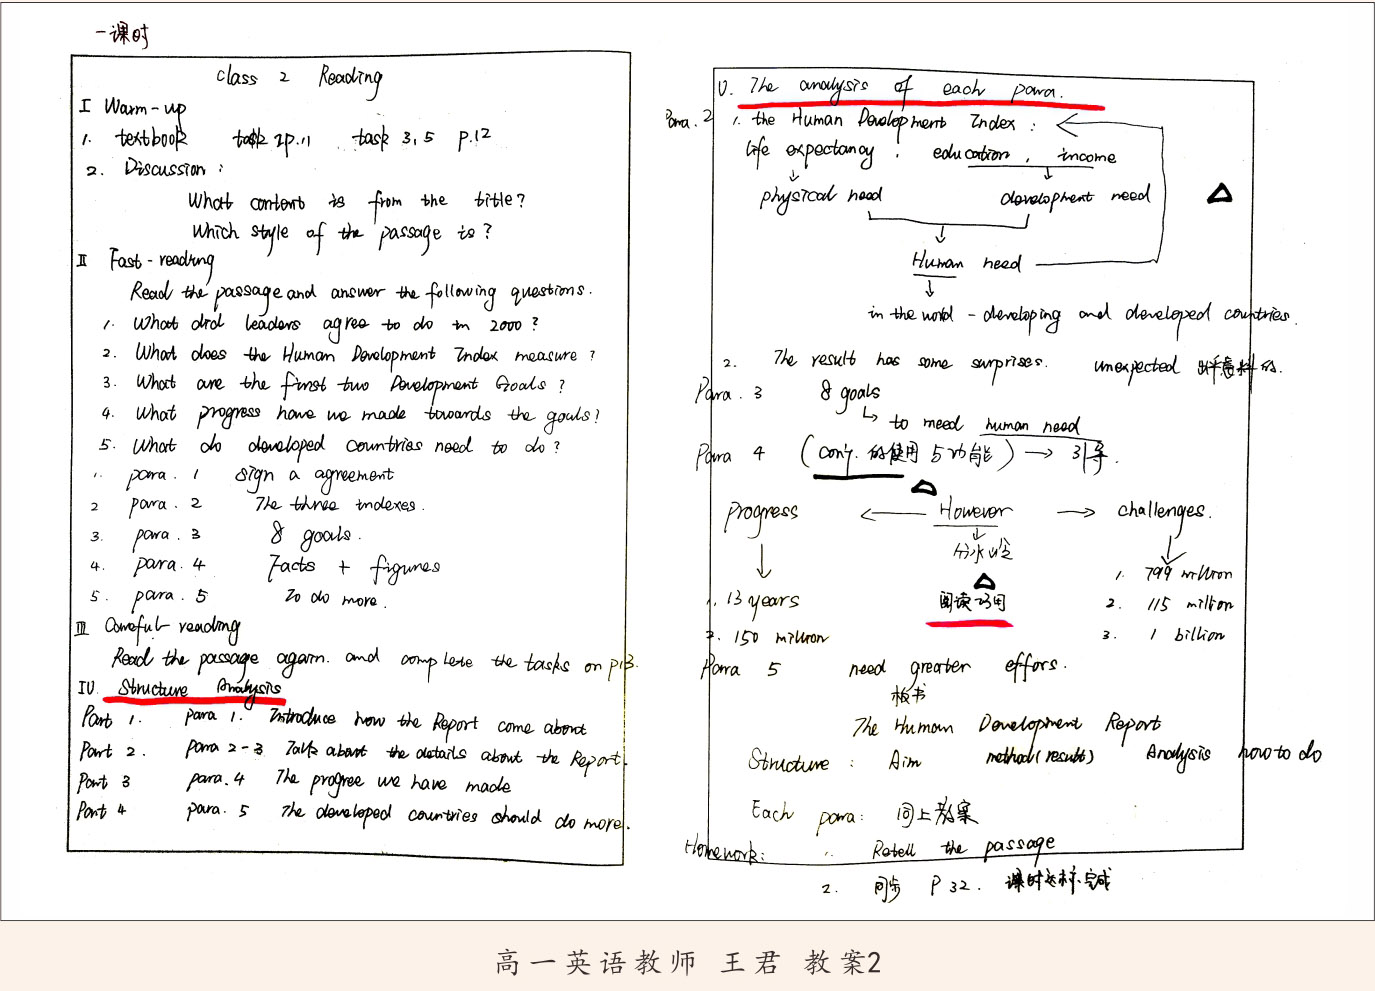 一课时
Class 2 Reading
I Warm-up
1. textbook task 2p.11 task 3,5 p.12
2. Discussion:
What content is from the title?
Which style of the passage is?
II Fast-reading
Read the passage and answer the following questions.
1. What did leaders agree to do in 2000?
2. What does the Human Development Index measure?
3. What are the first two Development Goals?
4. What progress have we made towards the goals?
5. What do developed countries need to do?
1. para. 1 sign a agreement
2 para. 2 The three indexes.
3. para. 3 8 goals.
4. para. 4 Facts + figures
5. para. 5 To do more.
III Careful-reading
Read the passage again. and complete the tasks on p13.
IV. Structure Analysis
Part 1. para 1. Introduce how the Report come about
Part 2. para 2-3 Talk about the details about the Report.
Part 3 para. 4 The progree we have made
Part 4 para. 5 The developed countries should do more.
V. The analysis of each para.
Para. 2 1. the Human Development Index:
life expectancy, education, income
physical need development need
Human need
in the world - developing and developed countries.
2. The result has some surprises. unexpected 出乎意料的.
Para. 3 8 goals
to meed human need
Para 4 (conj. 的使用与功能) → 引导
progress ← However → challenges.
分水岭
1. 13 years 阅读巧用 1. 799 million
2. 150 million 2. 115 million
3. 1 billion
Para 5 need greater effors.
板书
The Human Development Report
Structure: Aim method(result) Analysis how to do
Each para: 同上教案
Homework: 1. Retell the passage
2. 同步 P 32. 课时达标完成
高一英语教师 王君 教案2